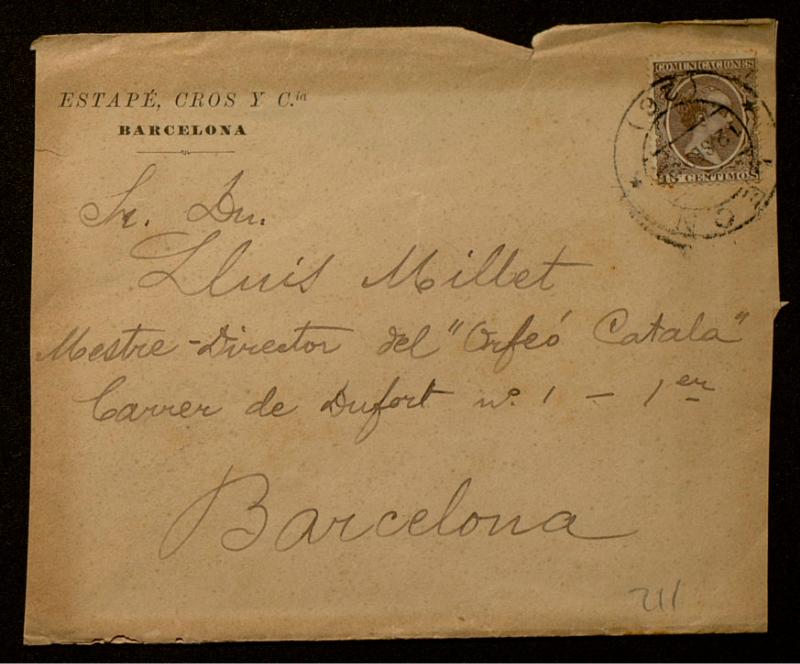 ESTAPÉ, CROS Y C.ia
BARCELONA
COMUNICACIONES
15 CENTIMOS
Sr. Dn.
Lluis Millet
Mestre-Director del "Orfeó Catala"
Carrer de Dufort nº. 1 - 1er
Barcelona
211